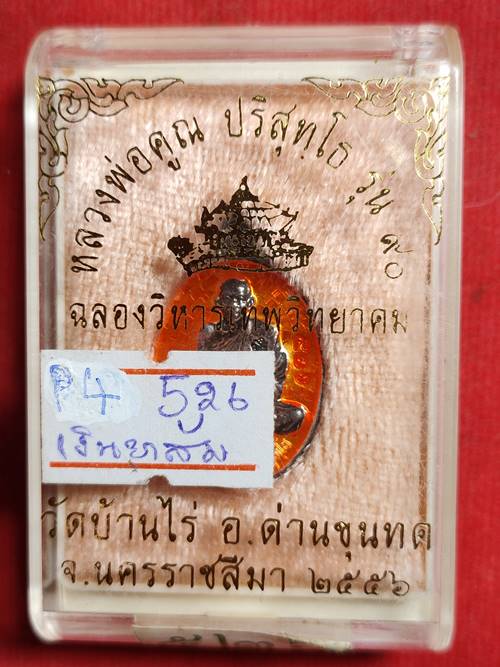 หลวงพ่อคูณ ปริสุทฺโธ รุ่น ๙๐
ฉลองวิหารเทพวิทยาคม
P4 526
เงินหลม
วัดบ้านไร่ อ.ด่านขุนทด
จ.นครราชสีมา ๒๕๕๖